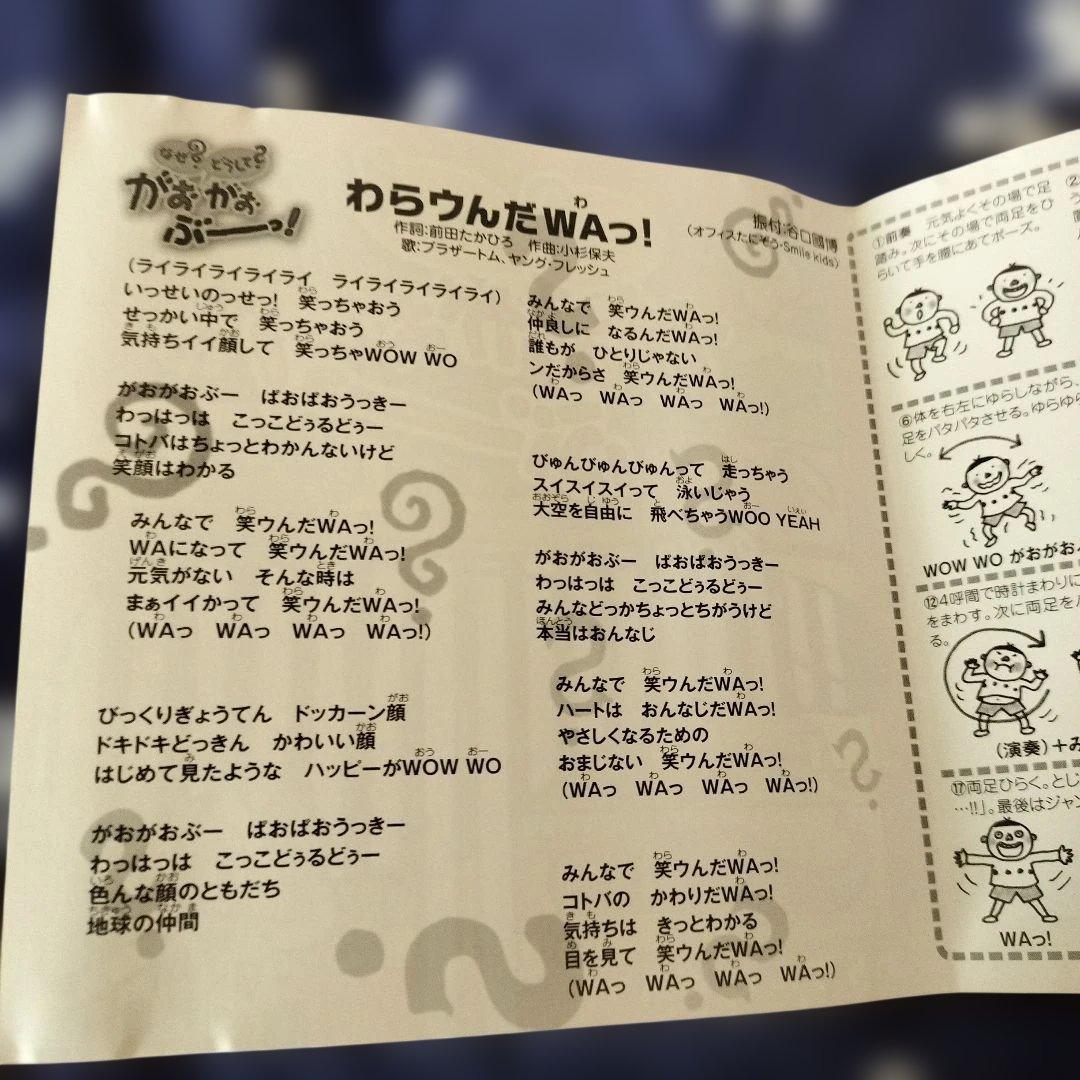 なぜ？どうして？
がおがお
ぶーっ！
わらウんだWAっ！
作詞：前田たかひろ　作曲：小杉保夫
歌：ブラザートム、ヤング・フレッシュ
振付：谷口國博
（オフィスたにぞう・Smile kids）
（ライライライライライ　ライライライライライ）
いっせいのっせっ！　笑っちゃおう
せっかい中で　笑っちゃおう
気持ちイイ顔して　笑っちゃWOW WO
がおがおぶー　ぱおぱおうっきー
わっはっは　こっこどぅるどぅー
コトバはちょっとわかんないけど
笑顔はわかる
みんなで　笑ウんだWAっ！
WAになって　笑ウんだWAっ！
元気がない　そんな時は
まぁイイかって　笑ウんだWAっ！
（WAっ　WAっ　WAっ　WAっ！）
びっくりぎょうてん　ドッカーン顔
ドキドキどっきん　かわいい顔
はじめて見たような　ハッピーがWOW WO
がおがおぶー　ぱおぱおうっきー
わっはっは　こっこどぅるどぅー
色んな顔のともだち
地球の仲間
みんなで　笑ウんだWAっ！
仲良しに　なるんだWAっ！
誰もが　ひとりじゃない
ンだからさ　笑ウんだWAっ！
（WAっ　WAっ　WAっ　WAっ！）
びゅんびゅんびゅんって　走っちゃう
スイスイスイって　泳いじゃう
大空を自由に　飛べちゃうWOO YEAH
がおがおぶー　ぱおぱおうっきー
わっはっは　こっこどぅるどぅー
みんなどっかちょっとちがうけど
本当はおんなじ
みんなで　笑ウんだWAっ！
ハートは　おんなじだWAっ！
やさしくなるための
おまじない　笑ウんだWAっ！
（WAっ　WAっ　WAっ　WAっ！）
みんなで　笑ウんだWAっ！
コトバの　かわりだWAっ！
気持ちは　きっとわかる
目を見て　笑ウんだWAっ！
（WAっ　WAっ　WAっ　WAっ！）
①前奏　元気よくその場で足
踏み。次にその場で両足をひ
らいて手を腰にあてポーズ。
⑥体を右左にゆらしながら、
足をバタバタさせる。ゆらゆら
しく。
WOW WO がおがお
⑫4呼間で時計まわりに
をまわす。次に両足を
る。
（演奏）＋み
⑰両足ひらく。とじ
…!!」。最後はジャン
WAっ！